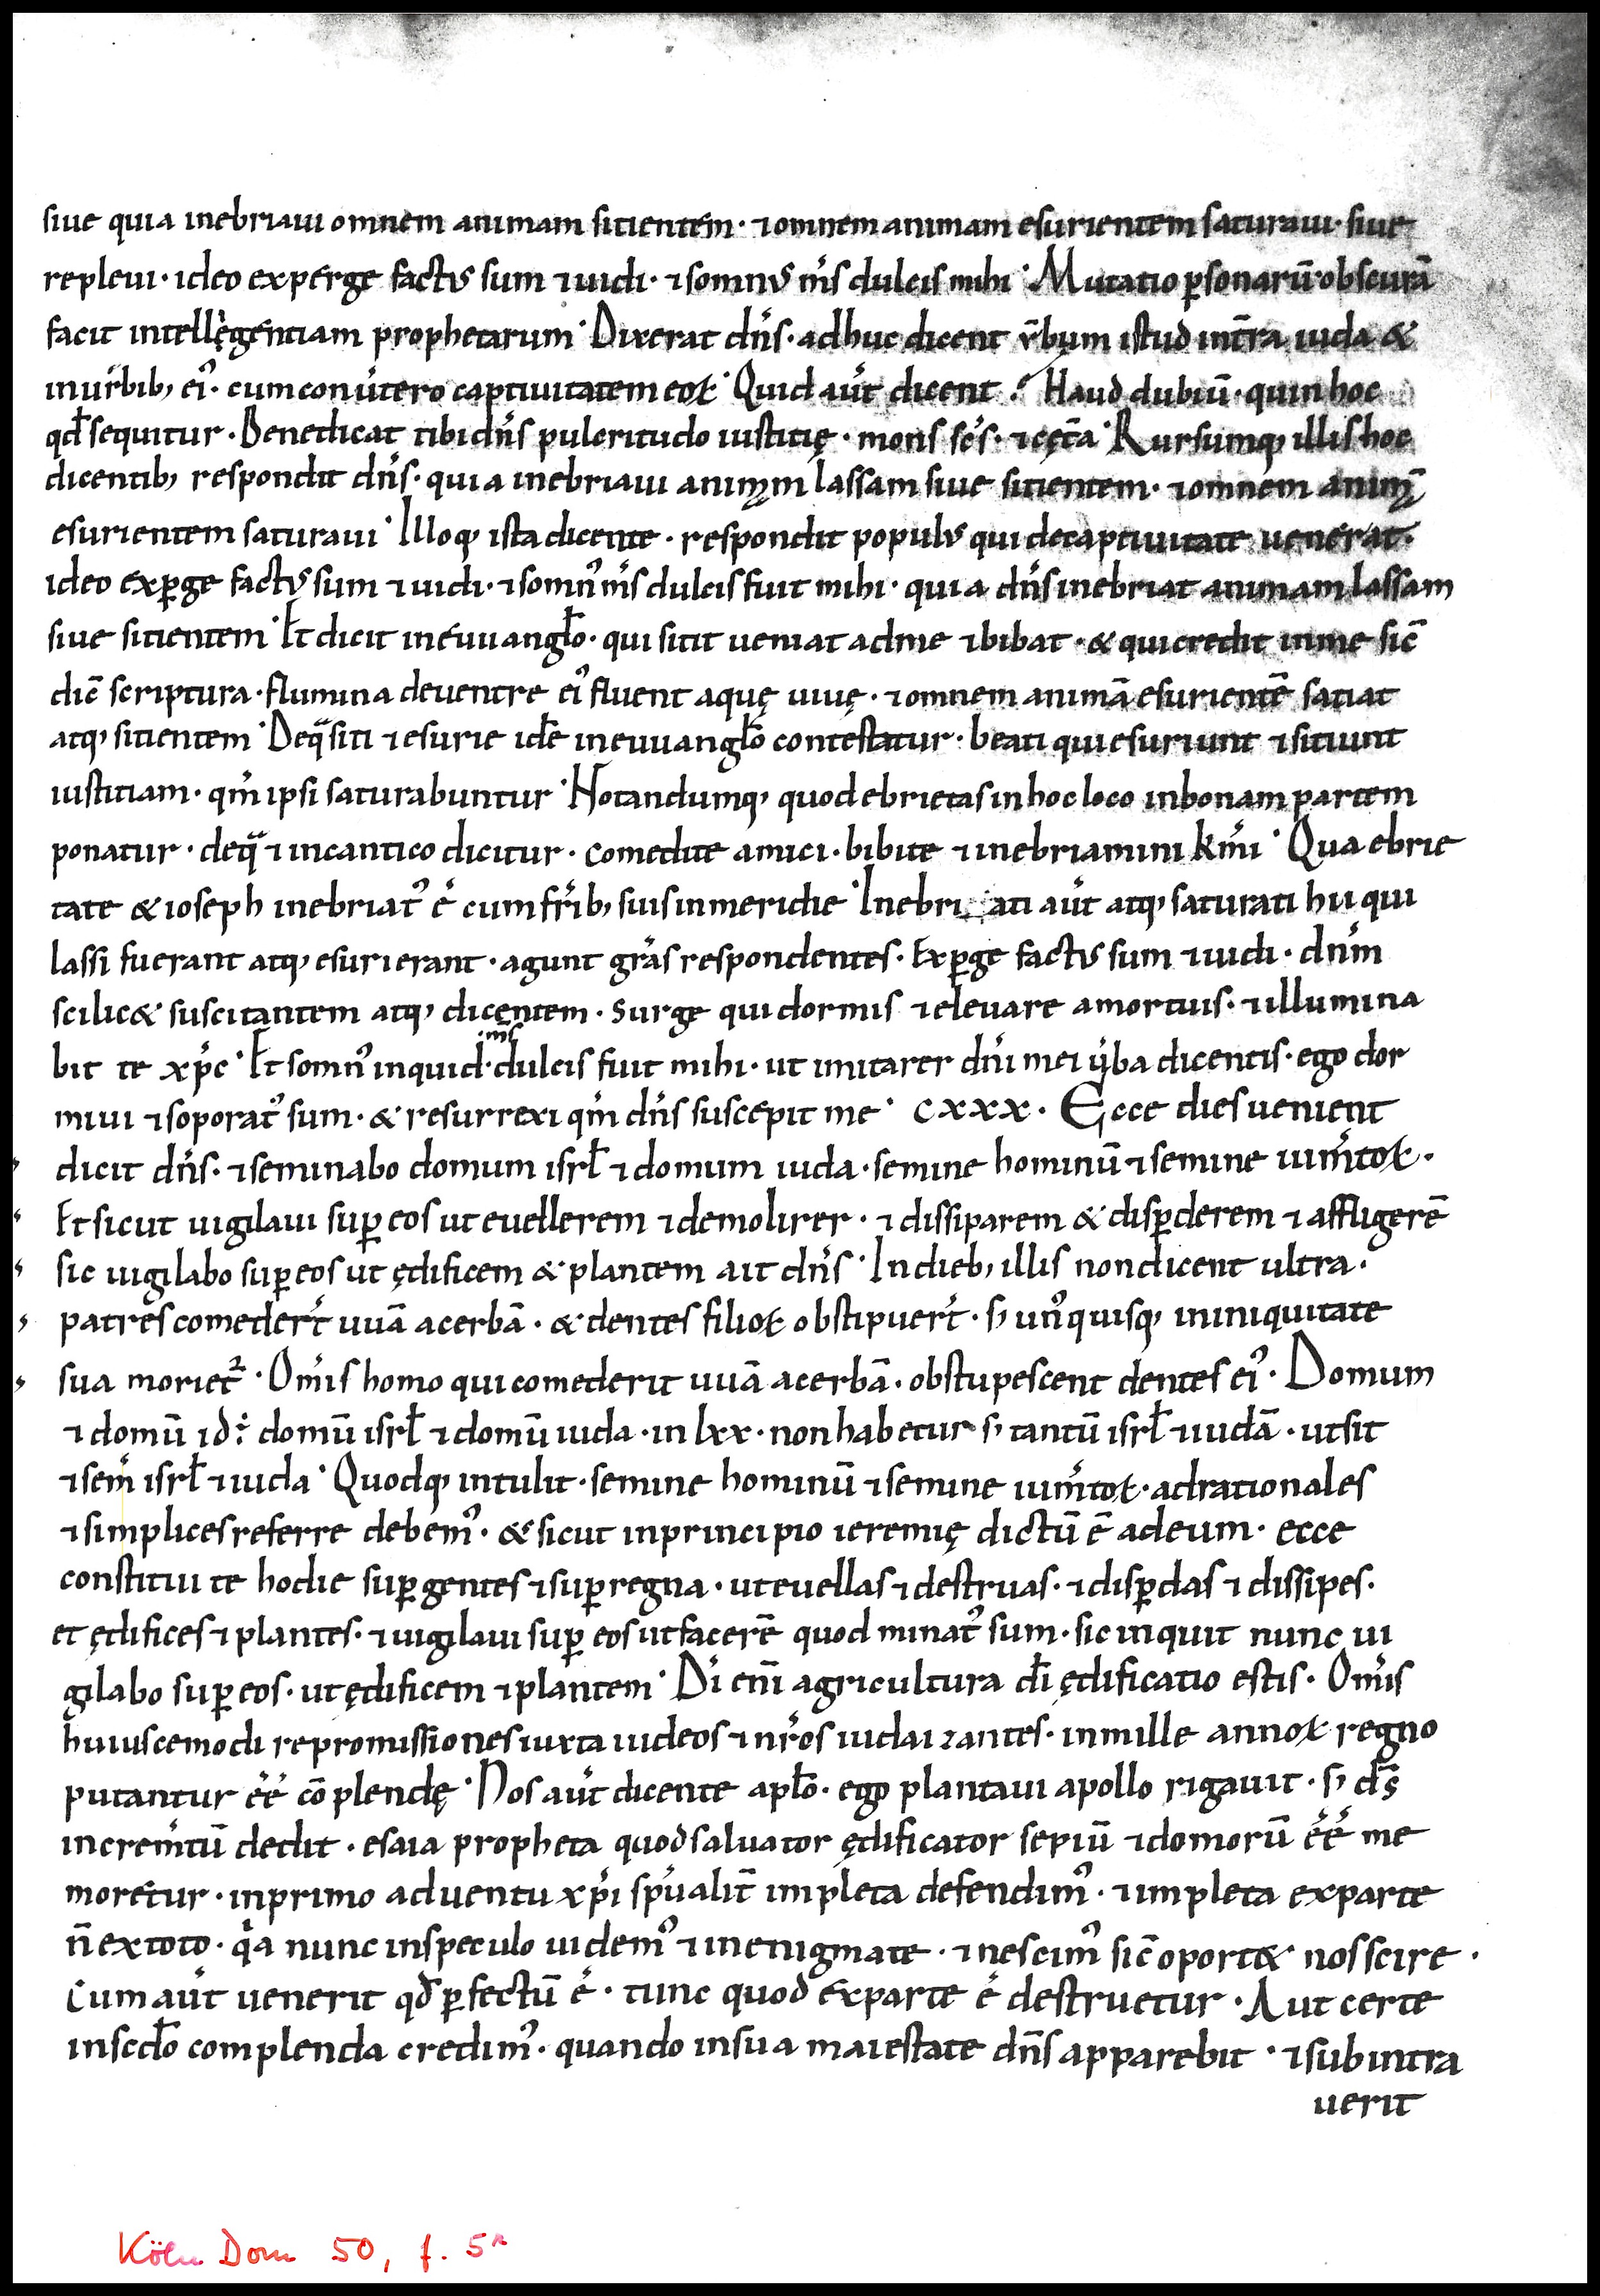 siue quia inebriaui omnem animam sitientem· ⁊omnem animam esurientem saturaui· siue
repleui· ideo experge factus sum ⁊uidi· ⁊somnus m̅s dulcis mihi· Mutatio p̱sonarū obscurā
facit intellęgentiam prophetarum· Dixerat dn̅s· adhuc dicent v̅bum istud in t̅ra iuda &
in urbib; ei᾿· cum conu̅tero captiuitatem eoꝝ· Quid au̅t dicent? Haud dubiū· quin hoc
qd̅ sequitur· Benedicat tibi dn̅s pulcritudo iustitię· mons sc̅s· ⁊cęt̅a· Rursumq; illis hoc
dicentib; respondit dn̅s· quia inebriaui animam lassam siue sitientem· ⁊omnem animā
esurientem saturaui· Illoq; ista dicente· respondit populus qui de captiuitate uenerat·
ideo exp̱ge factus sum ⁊uidi· ⁊somn᾿ m̅s dulcis fuit mihi· quia dn̅s inebriat animam lassam
siue sitientem· Et dicit in euuangl̅o· qui sitit ueniat ad me ⁊bibat· & qui credit in me sic̅
dic̅ scriptura· flumina de uentre ei᾿ fluent aquę uiuę· ⁊omnem animā esurientē satiat
atq; sitientem· De q̅ siti ⁊esurie ide̅ in euuangl̅o contestatur· beati qui esuriunt ⁊sitiunt
iustitiam· qm̅ ipsi saturabuntur· Notandumq; quod ebrietas in hoc loco in bonam partem
ponatur· de q̅ ⁊in cantico dicitur· comedite amici· bibite ⁊inebriamini km̅i· Qua ebrie
tate & ioseph inebriat᾿ e̅ cum fr̅ib; suis in meridie· Inebriati au̅t atq; saturati hii qui
lassi fuerant atq; esurierant· agunt gr̅as respondentes· Exp̱ge factus sum ⁊uidi· dn̅m
scilic& suscitantem atq; dicentem· surge qui dormis ⁊eleuare a mortuis· ⁊illumina
bit te xp̅c· Et somn᾿ inquid· m̅s dulcis fuit mihi· ut imitarer dn̅i mei v̅ba dicentis· ego dor
miui ⁊soporat᾿ sum· & resurrexi qm̅ dn̅s suscepit me· cxxx· Ecce dies uenient
dicit dn̅s· ⁊seminabo domum isrl̅ ⁊domum iuda· semine hominū ⁊semine ium̅toꝝ·
Et sicut uigilaui sup̱ eos ut euellerem ⁊demolirer· ⁊dissiparem & disp̱derem ⁊affligerē
sic uigilabo sup̱ eos ut ędificem & plantem ait dn̅s· In dieb; illis non dicent ultra·
patres comeder̅t uuā acerbā· & dentes filioꝝ obstipuer̅t· s; un᾿quisq; in iniquitate
sua moriet᾿· Om̅is homo qui comederit uuā acerbā· obstupescent dentes ei᾿· Domum
⁊domū id ÷ domū isrl̅ ⁊domū iuda· in lxx· non habetur s; tantū isrl̅ ⁊iudā· ut sit
⁊sem̅ isrl̅ ⁊iuda· Quodq; intulit· semine hominū ⁊semine ium̅toꝝ· ad rationales
⁊simplices referre debem᾿· & sicut in principio ieremię dictū ē ad eum· ecce
constitui te hodie sup̱ gentes ⁊sup̱ regna· ut euellas ⁊destruas· ⁊disp̱das ⁊dissipes·
et ędifices ⁊plantes· ⁊uigilaui sup̱ eos ut facerē quod minat᾿ sum· sic inquit nunc ui
gilabo sup̱ eos· ut ędificem ⁊plantem· Di̅ eni̅ agricultura di̅ ędificatio estis· Om̅is
huiuscemodi repromissiones iuxta iudeos ⁊nr̅os iudaizantes· in mille annoꝝ regno
putantur e̅e̅ cōplendę· Nos au̅t dicente apl̅o· ego plantaui apollo rigauit· s; ds̅
increm̅tū dedit· esaia propheta quod saluator ędificator sepiū ⁊domorū e̅e̅ me
moretur· in primo aduentu xp̅i sp̅ualit̅ impleta defendim᾿· ⁊impleta ex parte
n̅ ex toto· qa nunc in speculo uidem᾿ ⁊in enigmate· ⁊nescim᾿ sic̅ oport& nos scire·
Cum au̅t uenerit qd̅ p̱fectū e̅· tunc quod ex parte e̅ destruetur· Aut certe
in scd̅o complenda credim᾿· quando in sua maiestate dn̅s apparebit· ⁊subintra
uerit
Köln Dom 50, f. 5r